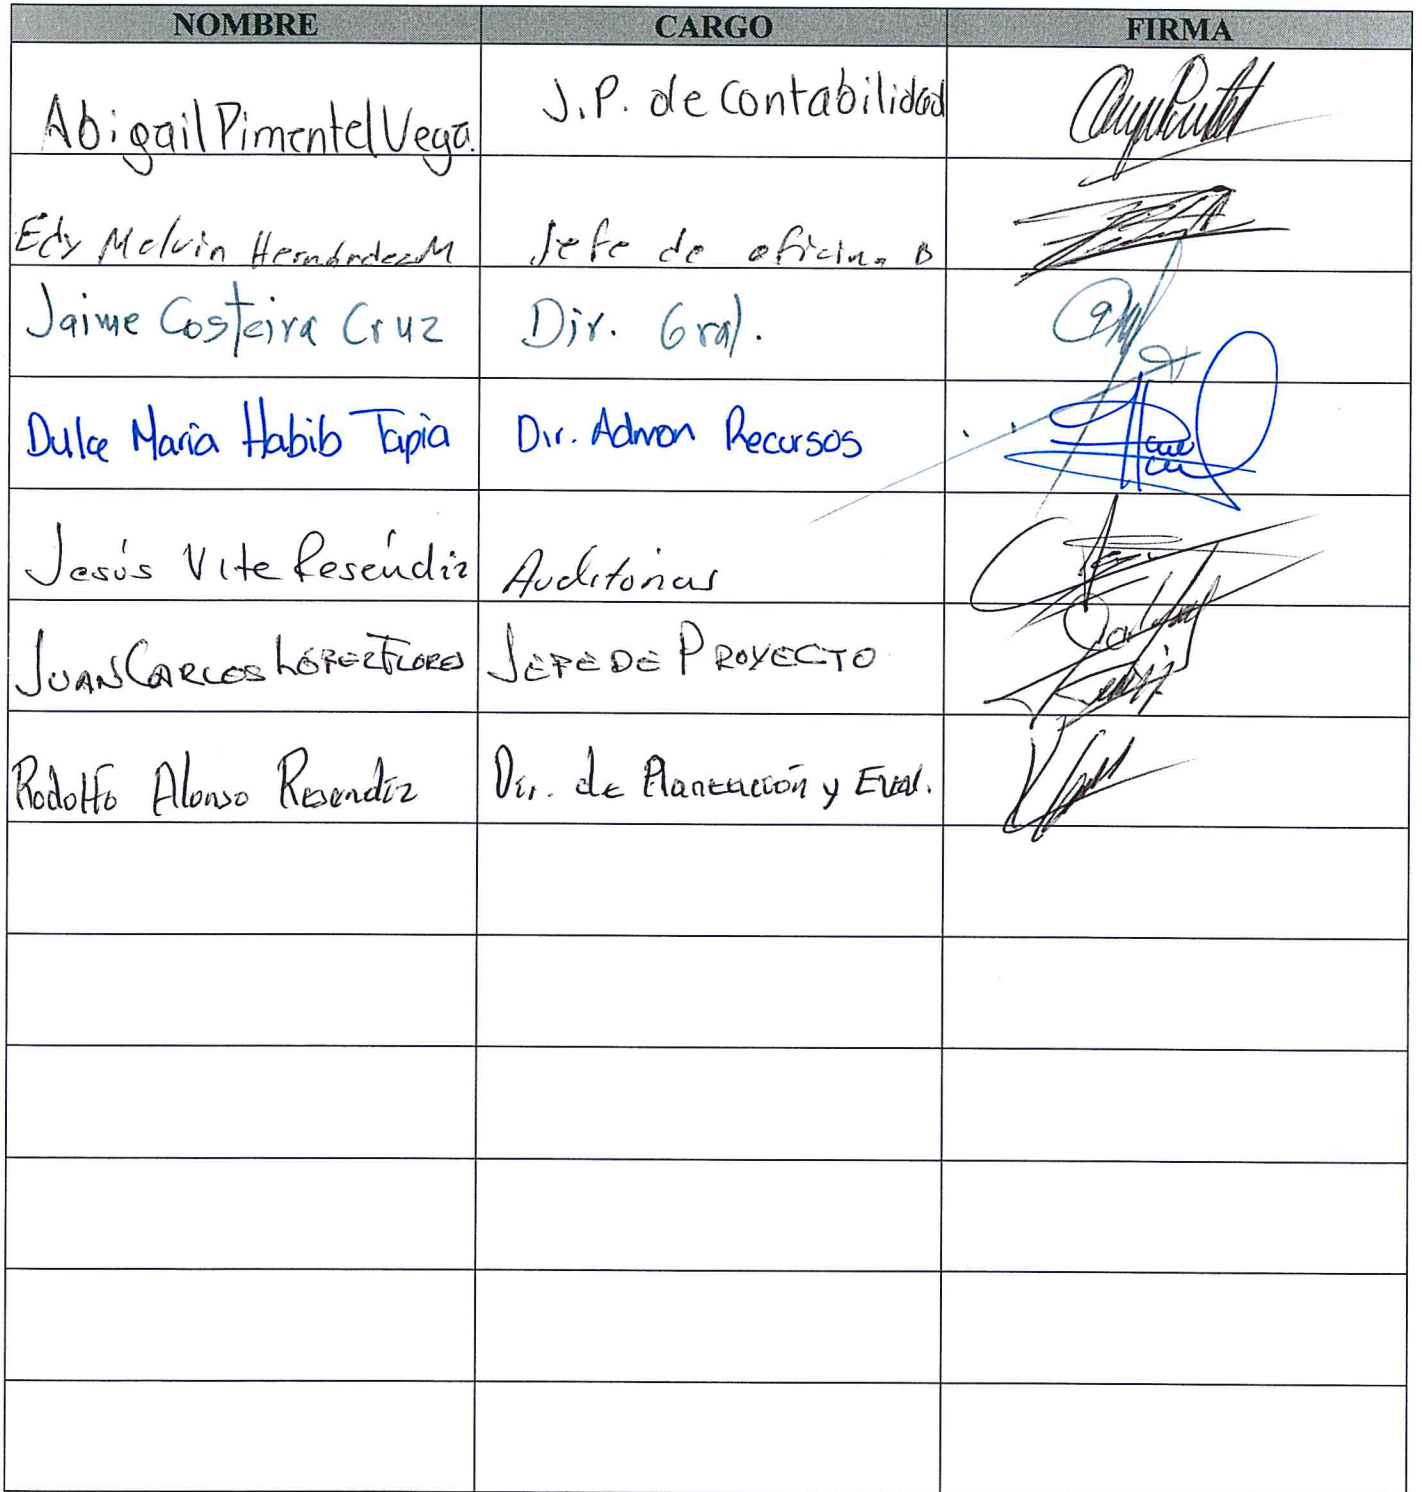 NOMBRE CARGO FIRMA
Abigail Pimentel Vega. J.P. de Contabilidad
Edy Melvin Hernández M Jefe de oficina B
Jaime Costeira Cruz Dir. Gral.
Dulce Maria Habib Tapia Dir. Admon Recursos
Jesús Vite Reséndiz Auditorias
JUAN CARLOS LÓPEZ FLORES JEFE DE PROYECTO
Rodolfo Alonso Resendiz Dir. de Planeación y Eval.